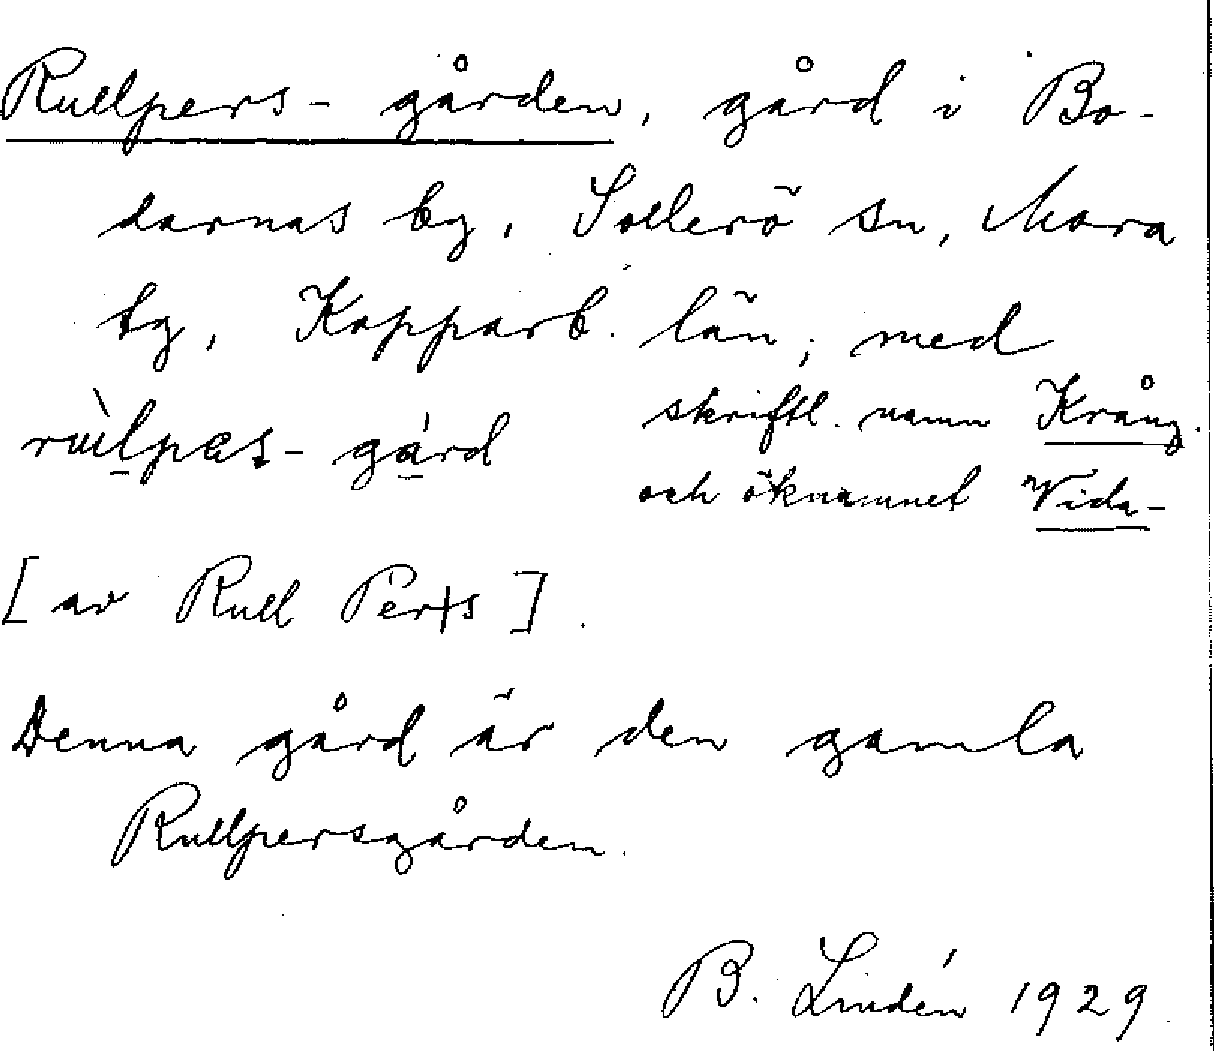 Rullpers-gården, gård i Bo-
darnas by, Sollerö sn, Mora
tg, Kopparb. län, med
skriftl. namn Krång.
rùlpəs-gård
och öknamnet Vida-
[av Rull Pers].
Denna gård är den gamla
Rullpersgården.
B. Lindén 1929